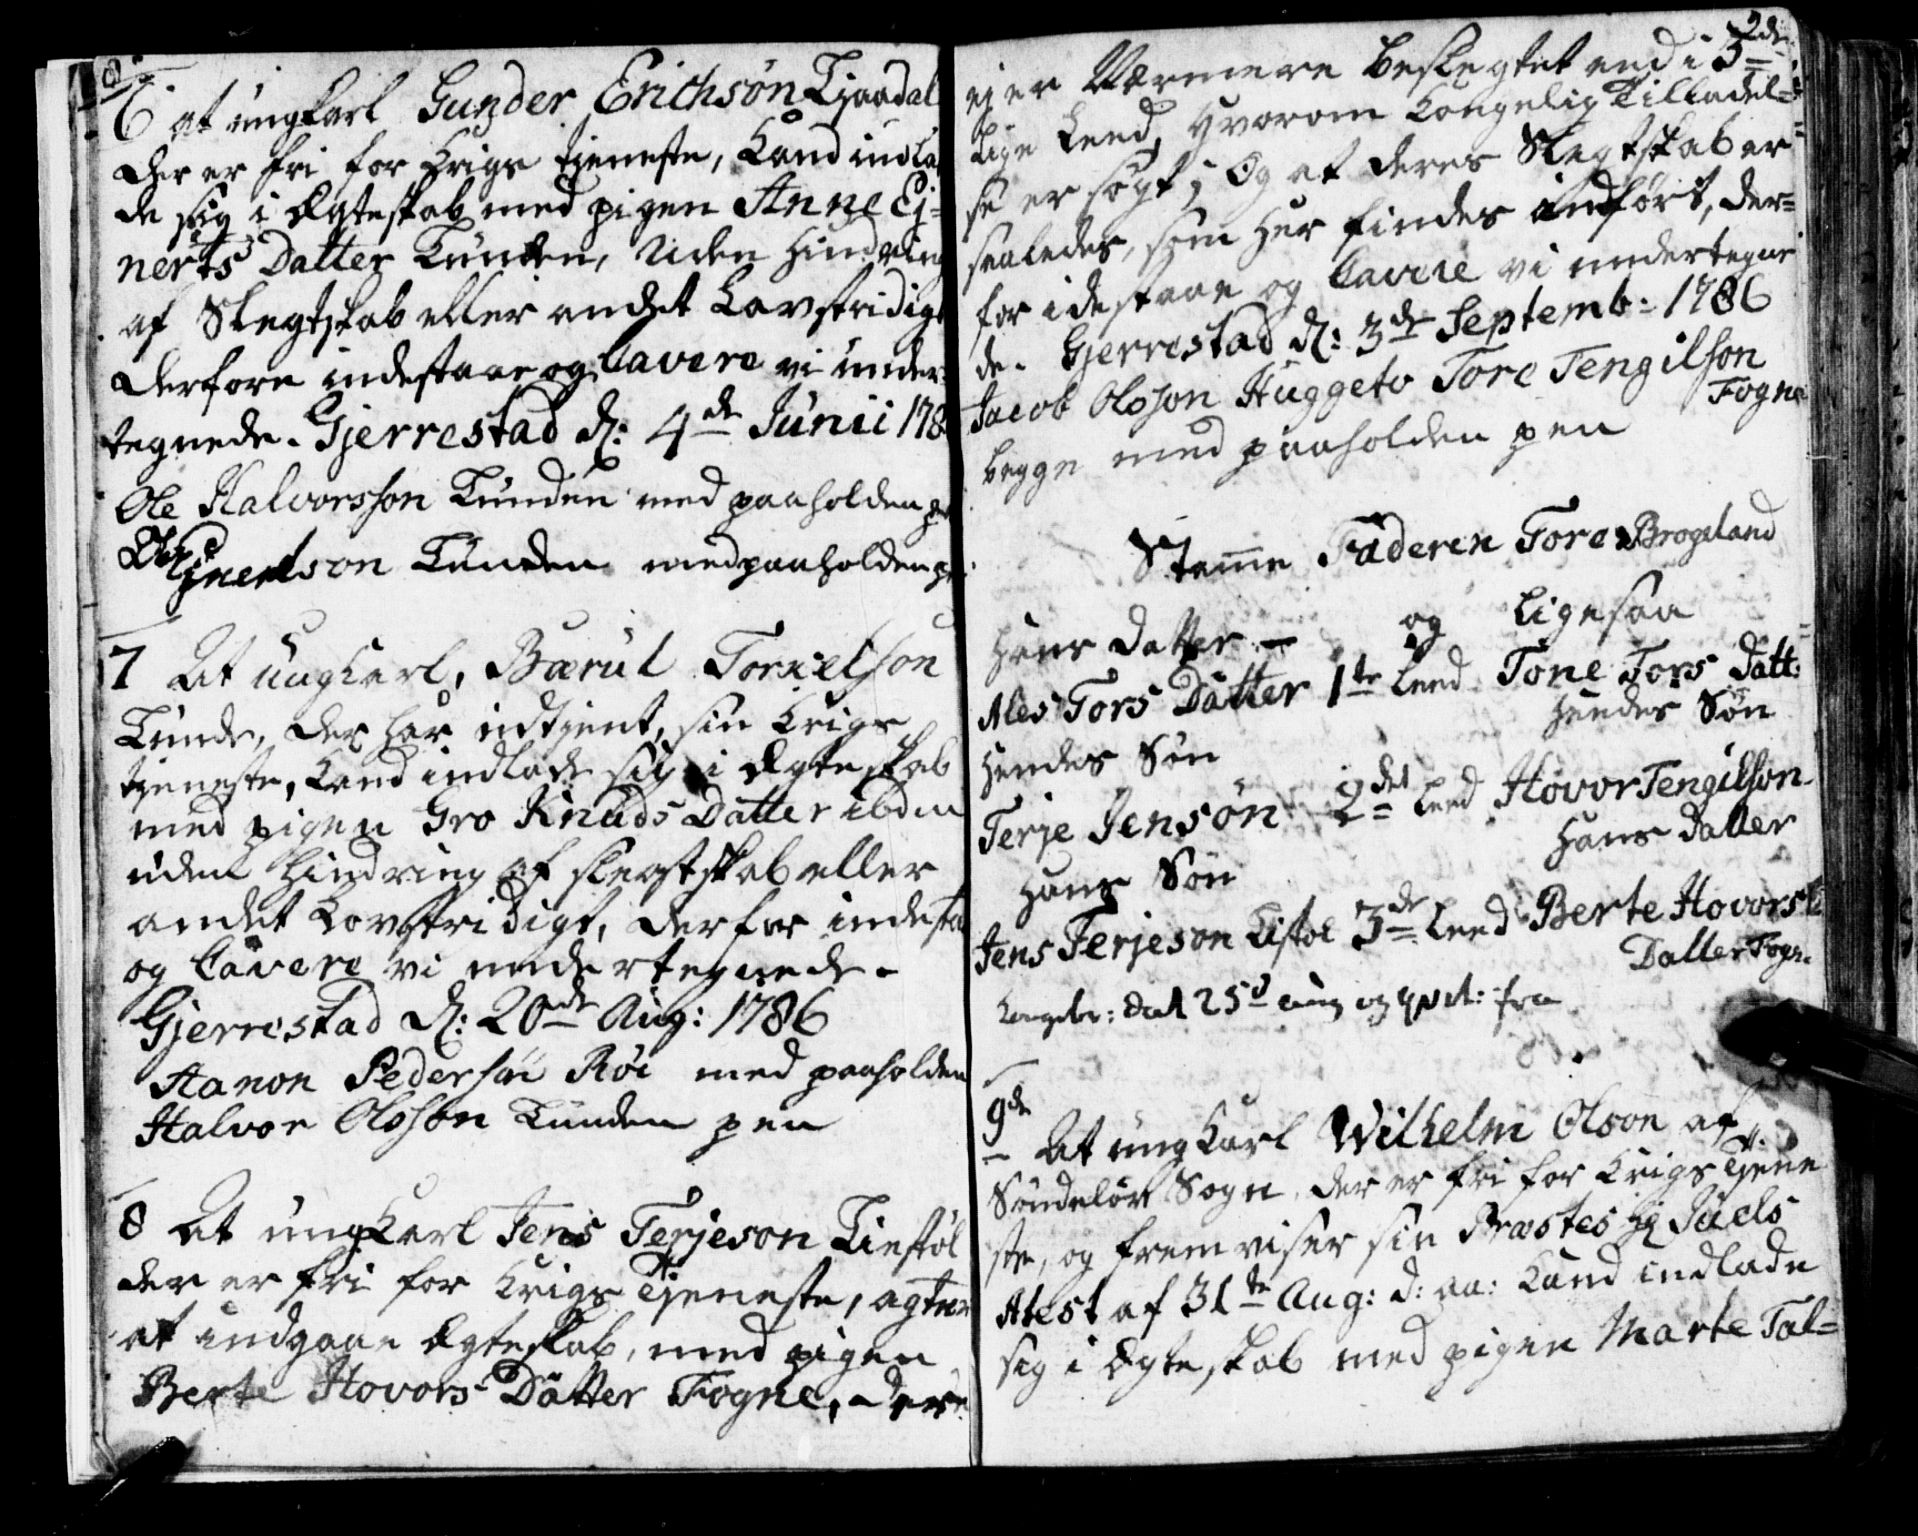 6 at ungkarl Gunder Erichsøn Tjaadal
der er fri for Krigs tjeneste, Kand indla
de sig i Ægteskab med pigen Anne Ej-
nerts Datter Lunden, Uden Hindring
af Slegtskab eller andet Lovstridigt
Derfore indestaae og Cavere vi under-
tegnede. Gjerrestad d: 4de Junii 178
Ole Halvorsson Lunden med paaholden p
Ejnertson Lunden med paaholden p
7 At ungkarl, Bærul Torkelson
Lunde, der har udtjent, sin Krigs
tjeneste, Kand indlade sig i Ægteskab
med pigen Gro Knuds Datter ibdm
uden Hindring af slegtskab eller
andet Lovstridigt, derfor indesta
og Cavere vi undertegnede.
Gjerrestad d: 20de Aug: 1786
Aanon Pedersøn Röe med paaholden
Halvor Olsson Lunden pen
8 At ungkarl Jens Terjeson Lifstöl
der er fri for Krigs Tjeneste, agter
at indgaae Ægteskab, med pigen
Berte Hovors Datter Fogne, der
2de
ej er Nærmere beslegtet end i 3de
Lige Leed, Hvorom Kongelig Tilladel-
se er søgt; Og at deres Slegtskab er
saaledes, som her findes indført, der-
for idestaae og Cavere vi undertegne
de. Gjerrestad d: 3de Septemb: 1786
Jacob Olsson Huggeto Tore Tengilson
Fogne
begge med paaholden pen
Stamme Faderen Tore Brogeland
Hans Datter - og Ligesaa
Ales Tors Datter 1te Leed Tone Tors Datt:
Hendes Søn Hendes Søn
Terje Jensøn 2det Leed Hovor Tengilson
Hans Søn Hans Datter
Jens Terjeson Lifstöl 3de Leed Berte Hovors
Datter Fogne
Kongebr: dat 25d aug
9de
At ungkarl Wilhelm Olson af
Søndeløv Sogn, der er fri for Krigs Tjene
ste, og fremviser sin Præstes Hr Juels
Atest af 31te Aug: d: aa: Kand indlade
sig i Ægteskab med pigen Marte Tal-